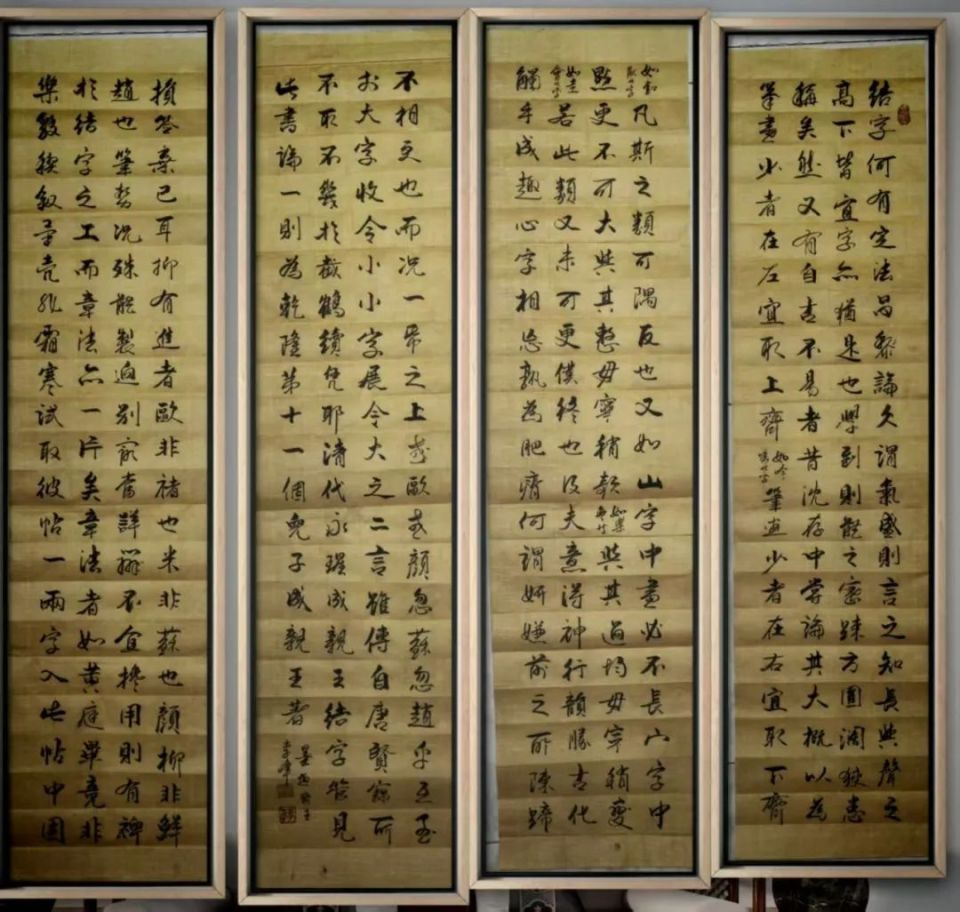 結字何有定法昌黎論文謂氣盛則言之短長與聲之
高下皆宜字亦猶是也學到則體之密疎方圓濶狹悉
稱矣然又有自古不易者昔沈存中嘗論其大概以為
筆畫少者在左宜取上齊筆畫少者在右宜取下齊
凡斯之類可隅反也又如山字中畫必不長宀字中
點更不可大與其憨毋寧稍欹與其過均毋寧稍變
若此類又未可更僕終也及夫意得神行韻勝古化
觸手成趣心字相忘孰為肥瘠何謂妍媸前之所陳蹄
損筌棄已耳抑有進者歐非褚也米非蘇也顏柳非鮮
趙也筆勢既殊體製迥別最當詳辨不宜攙用則有裨
於結字之工而章法亦一片矣章法者如黃庭畢竟非
樂毅禊敘畢竟非霜寒試取彼帖一兩字入此帖中圓
不相更也而況一帋之上或歐或顏忽蘇忽趙乎且至
於大字收令小小字展令大之二言雖傳自唐賢寔所
不取不幾於截鶴續凫耶清代永瑆成親王結字管見
此書論一則為乾隆第十一個兒子成親王者